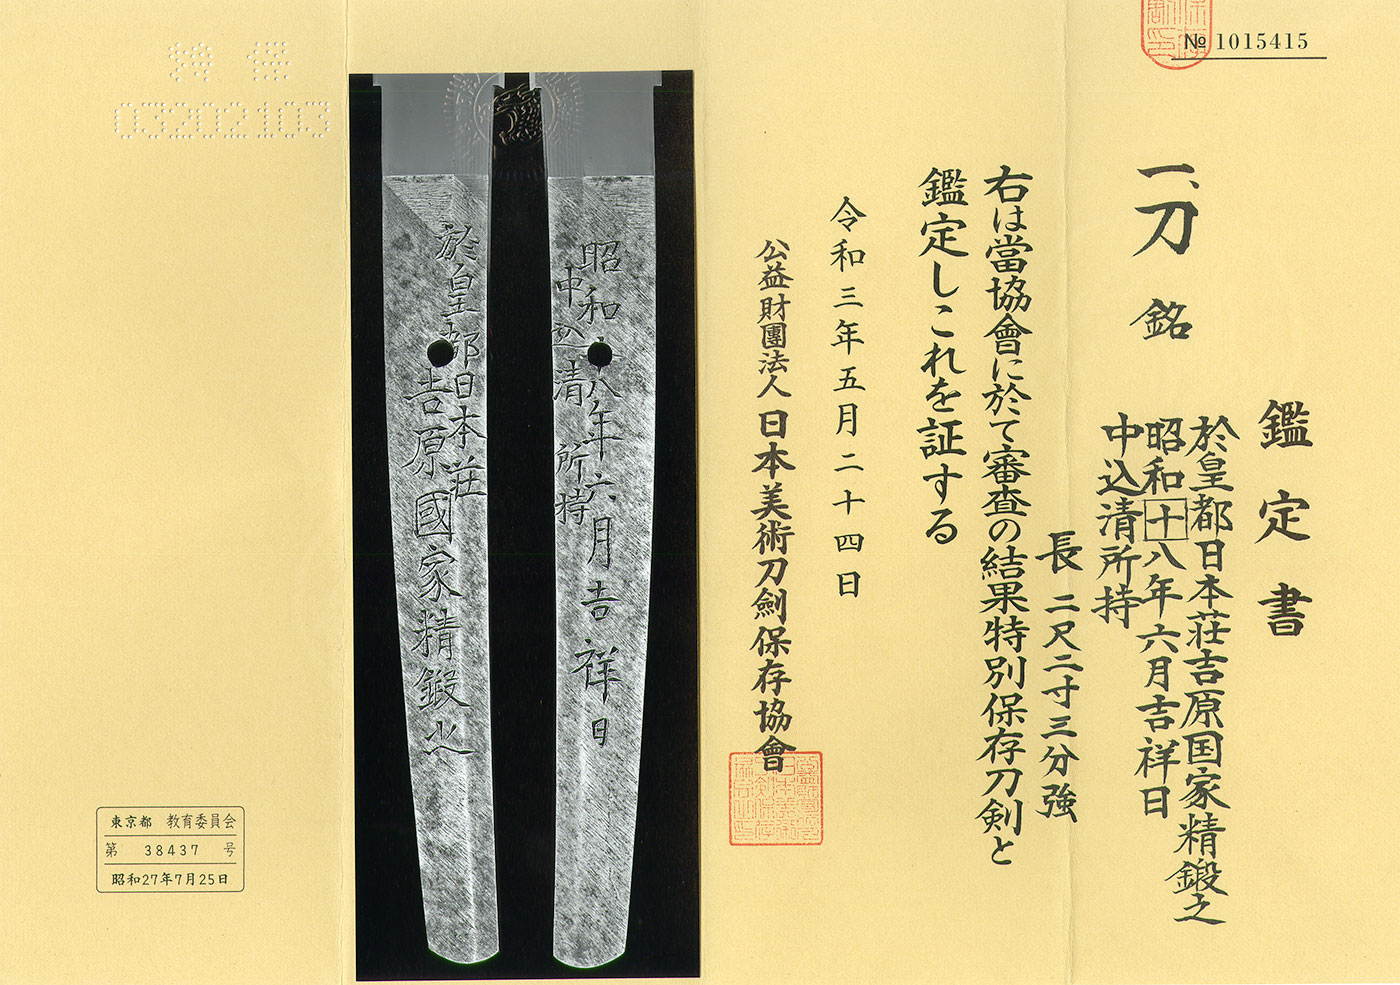 № 1015415
鑑定書
一、刀 銘
於皇都日本荘吉原国家精鍛之
昭和十八年六月吉祥日
中込清所持
長 二尺二寸三分強
右は當協會に於て審査の結果特別保存刀剣と
鑑定しこれを証する
令和三年五月二十四日
公益財團法人 日本美術刀劍保存協會
昭和十八年六月吉祥日
中込清所持
於皇都日本荘
吉原國家精鍛之
特保
03202103
東京都 教育委員会
第 38437 号
昭和27年7月25日